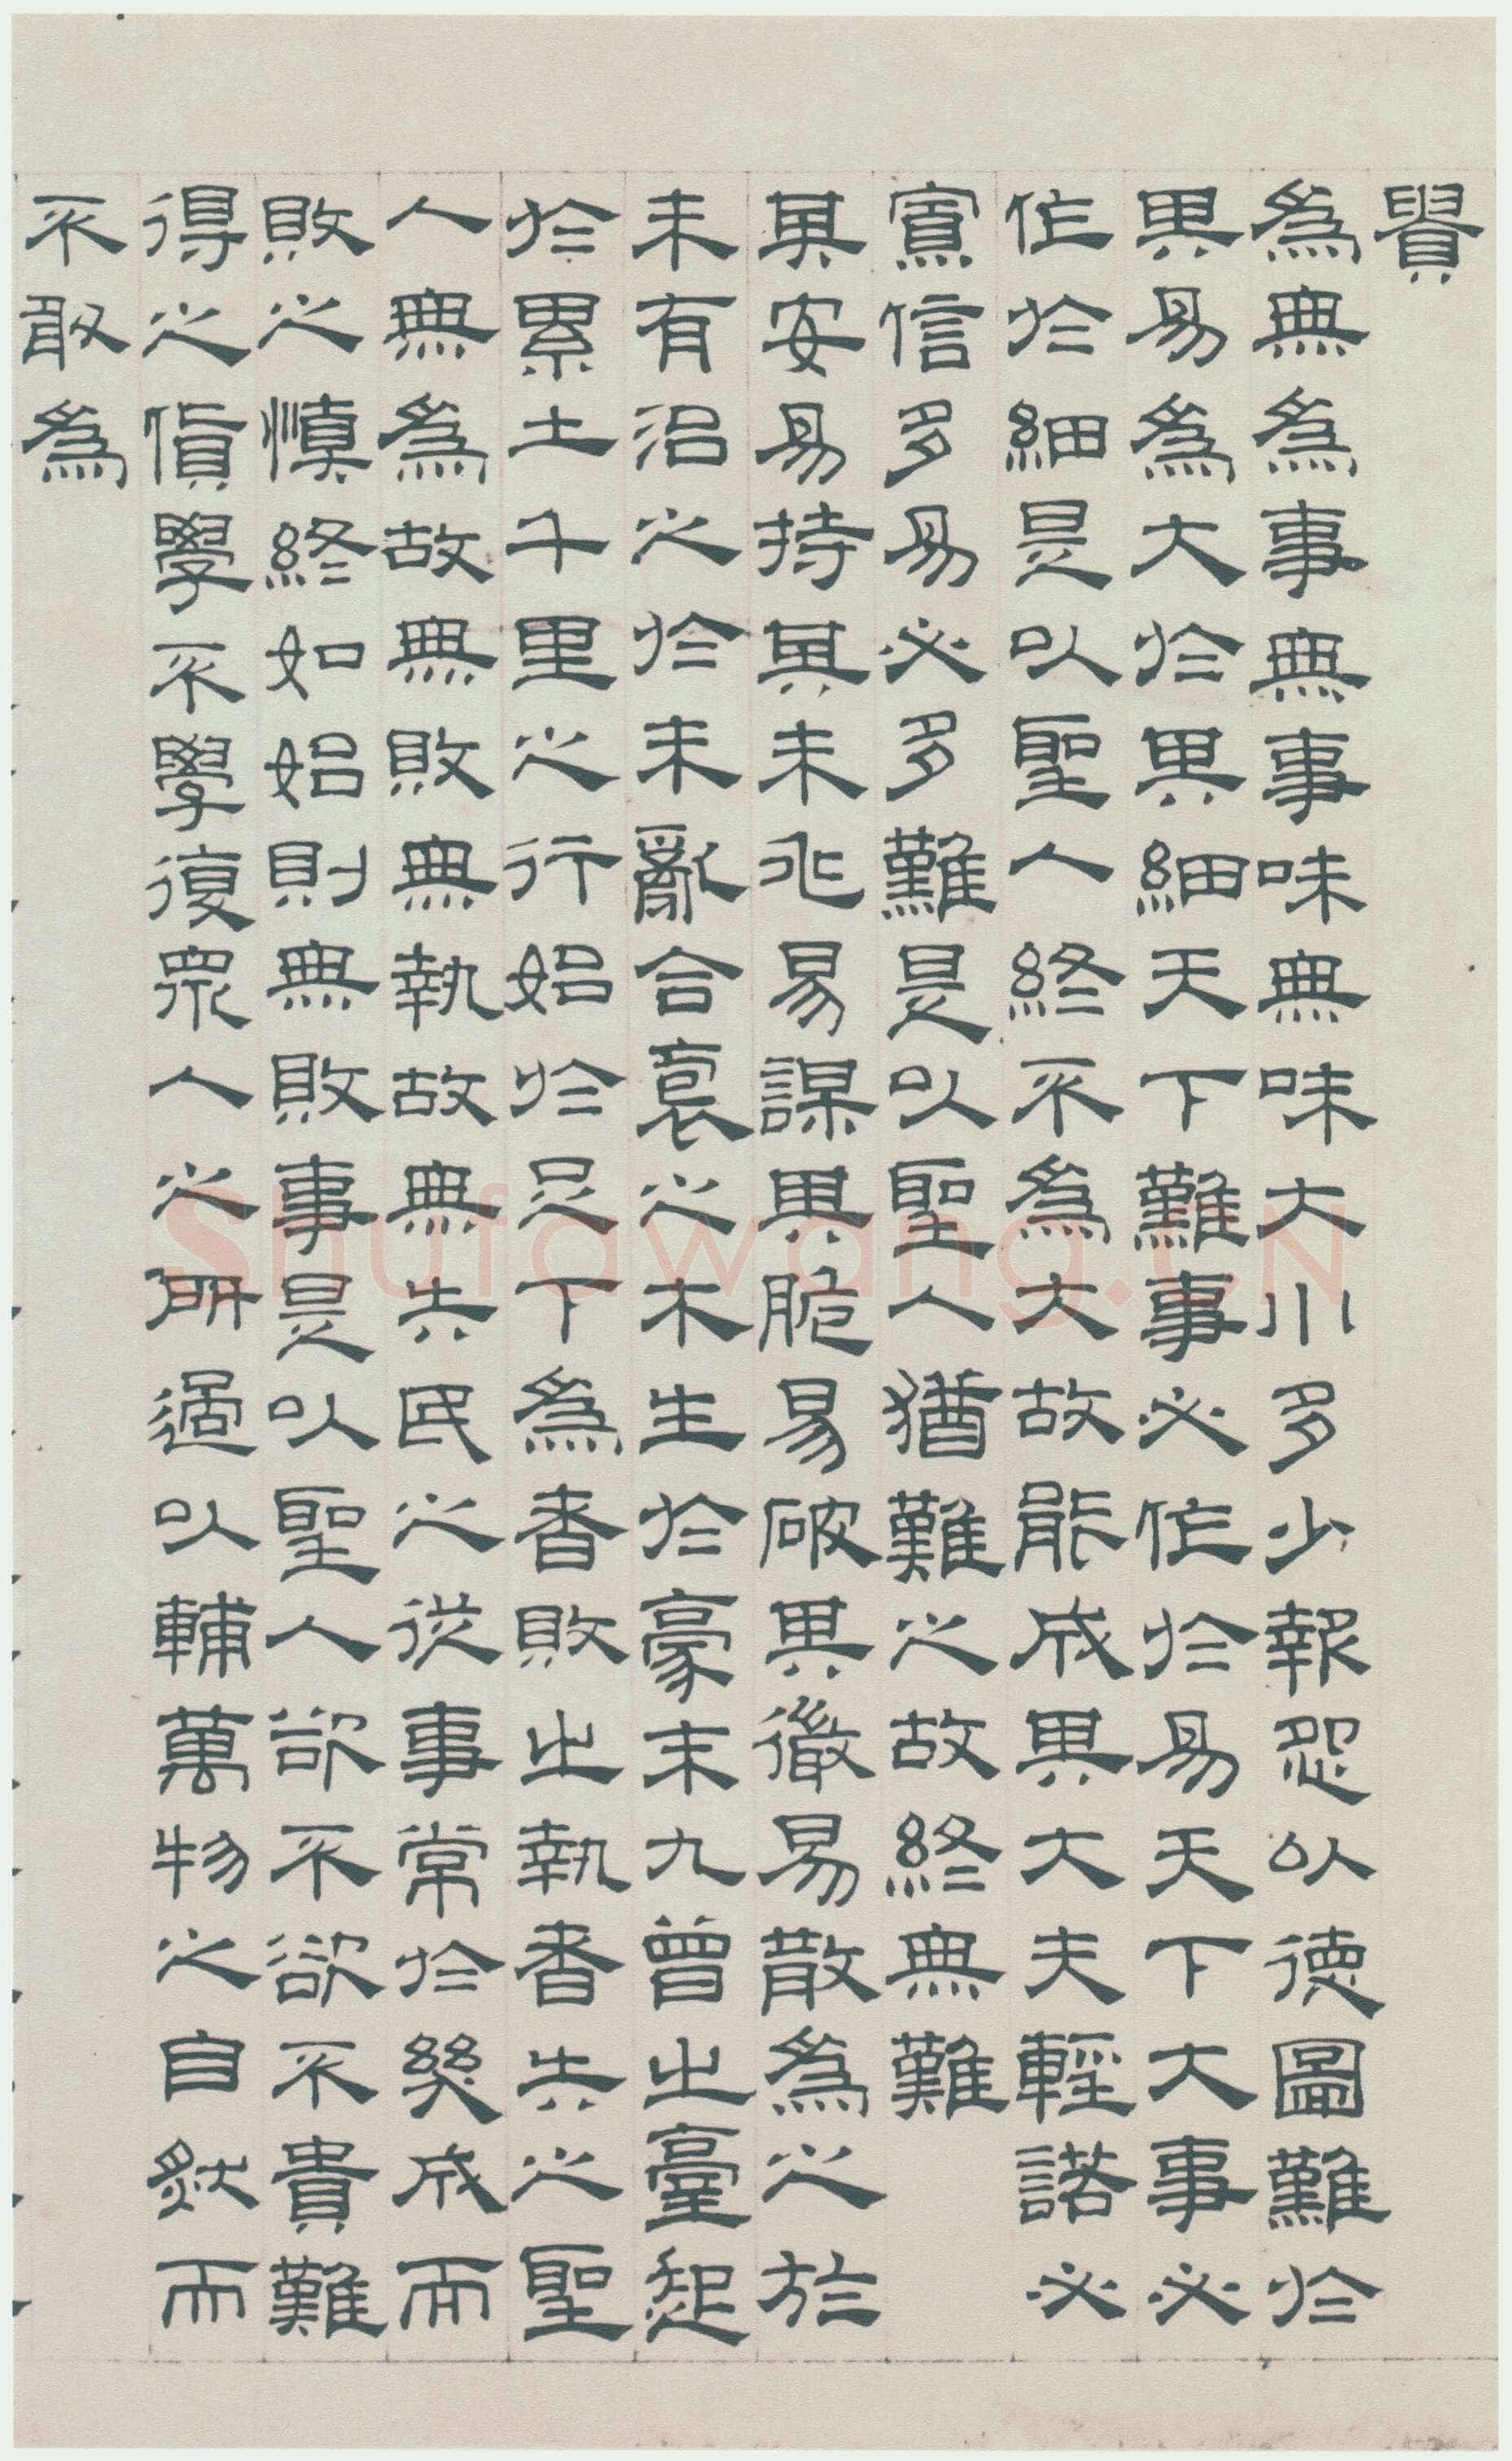 貴
為無為事無事味無味大小多少報怨以德圖難於
其易為大於其細天下難事必作於易天下大事必
作於細是以聖人終不為大故能成其大夫輕諾必
寡信多易必多難是以聖人猶難之故終無難
其安易持其未兆易謀其脆易破其微易散為之於
未有治之於未亂合袌之木生於豪末九曾之臺起
於累土千里之行始於足下為者敗之執者失之聖
人無為故無敗無執故無失民之從事常於幾成而
敗之慎終如始則無敗事是以聖人欲不欲不貴難
得之貨學不學復眾人之所過以輔萬物之自然而
不敢為
Shufawang.CN